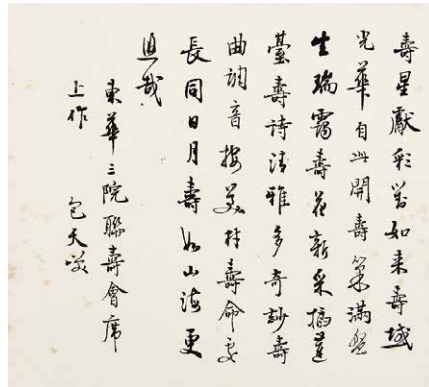 壽星獻彩對如来壽域
光華自此開壽菓滿盤
生瑞靄壽花新采插蓮
臺壽詩清雅多奇妙壽
曲調音按美材壽命延
長同日月壽如山海更
悠哉
東華三院聯壽會席
上作 包天笑